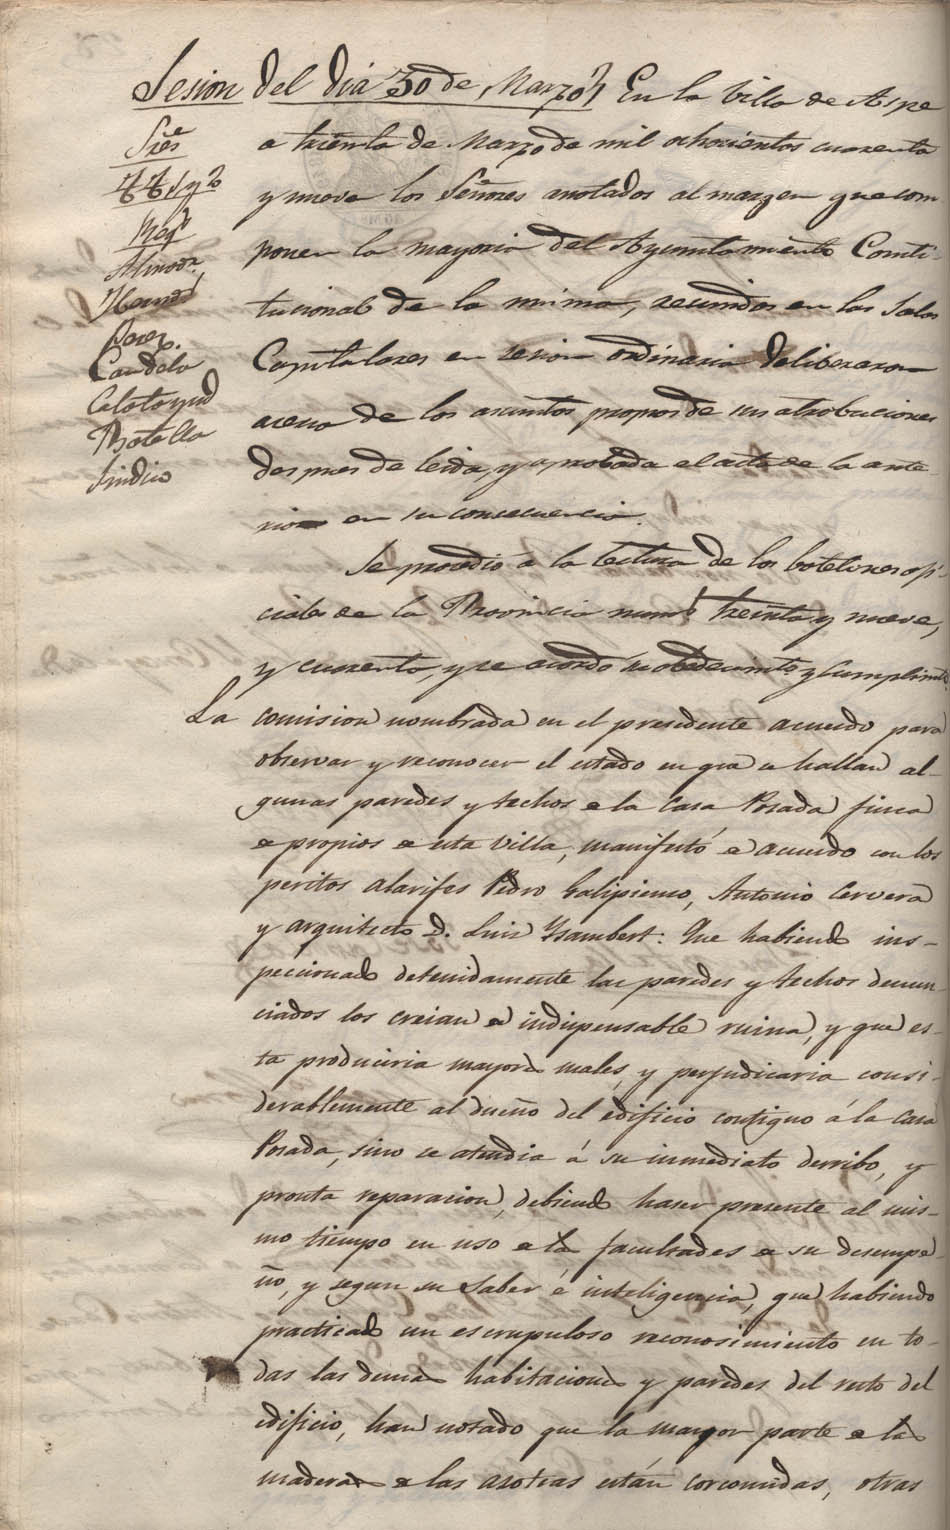 Sesion del dia 30 de Marzo
En la Villa de Aspe
Sres
Reg.s
Almodr.
Hernd.
Perez.
Candela
Calatayud
Botella
Sindico
a treinta de Marzo de mil ochocientos cuarenta
y nueve los Señores anotados al margen que com
ponen la mayoria del Ayuntamiento Consti
tucional de la misma, reunidos en las Salas
Capitulares en sesion ordinaria deliberaron
acerca de los asuntos propios de sus atribuciones
despues de leida, y aprobada el acta de la ante-
rior en su consecuencia.
Se procedió á la lectura de los boletines ofi-
ciales de la Provincia num.s treinta y nueve,
y cuarenta, y se acordó su obedecimto. y cumplimto
La comision nombrada en el presidente acuerdo para
observar y reconocer el estado en que se hallan al-
gunas paredes y techos de la Casa Posada finca
de propios de esta Villa, manifestó de acuerdo con los
peritos alarifes Pedro Galipienso, Antonio Cervera
y arquitecto D. Luis Ysambert: Que habiendo ins-
peccionado detenidamente las paredes y techos denun-
ciados los creian de indispensable ruina, y que es-
ta produciria mayores males, y perjudicaria consi-
derablemente al dueño del edificio contiguo á la Casa
Posada, sino se atendia á su inmediato derribo, y
pronta reparacion, debiendo haser presente al mis-
mo tiempo en uso de las facultades de su desempe-
ño, y segun su saber é inteligencia, que habiendo
practicado un escrupuloso reconosimiento en to-
das las demas habitaciones y paredes del resto del
edificio, han notado que la mayor parte de las
maderas de las azoteas están corcomidas, otras